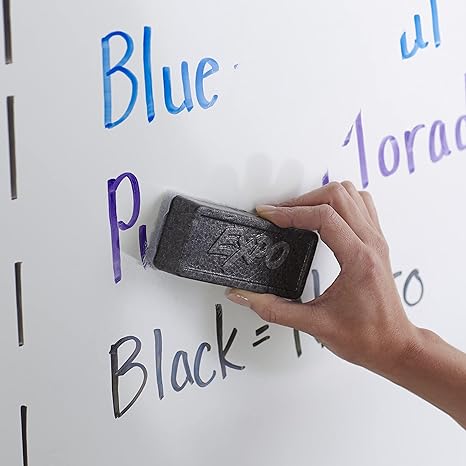 Blue ul
P Morad
EXPO
Black = o